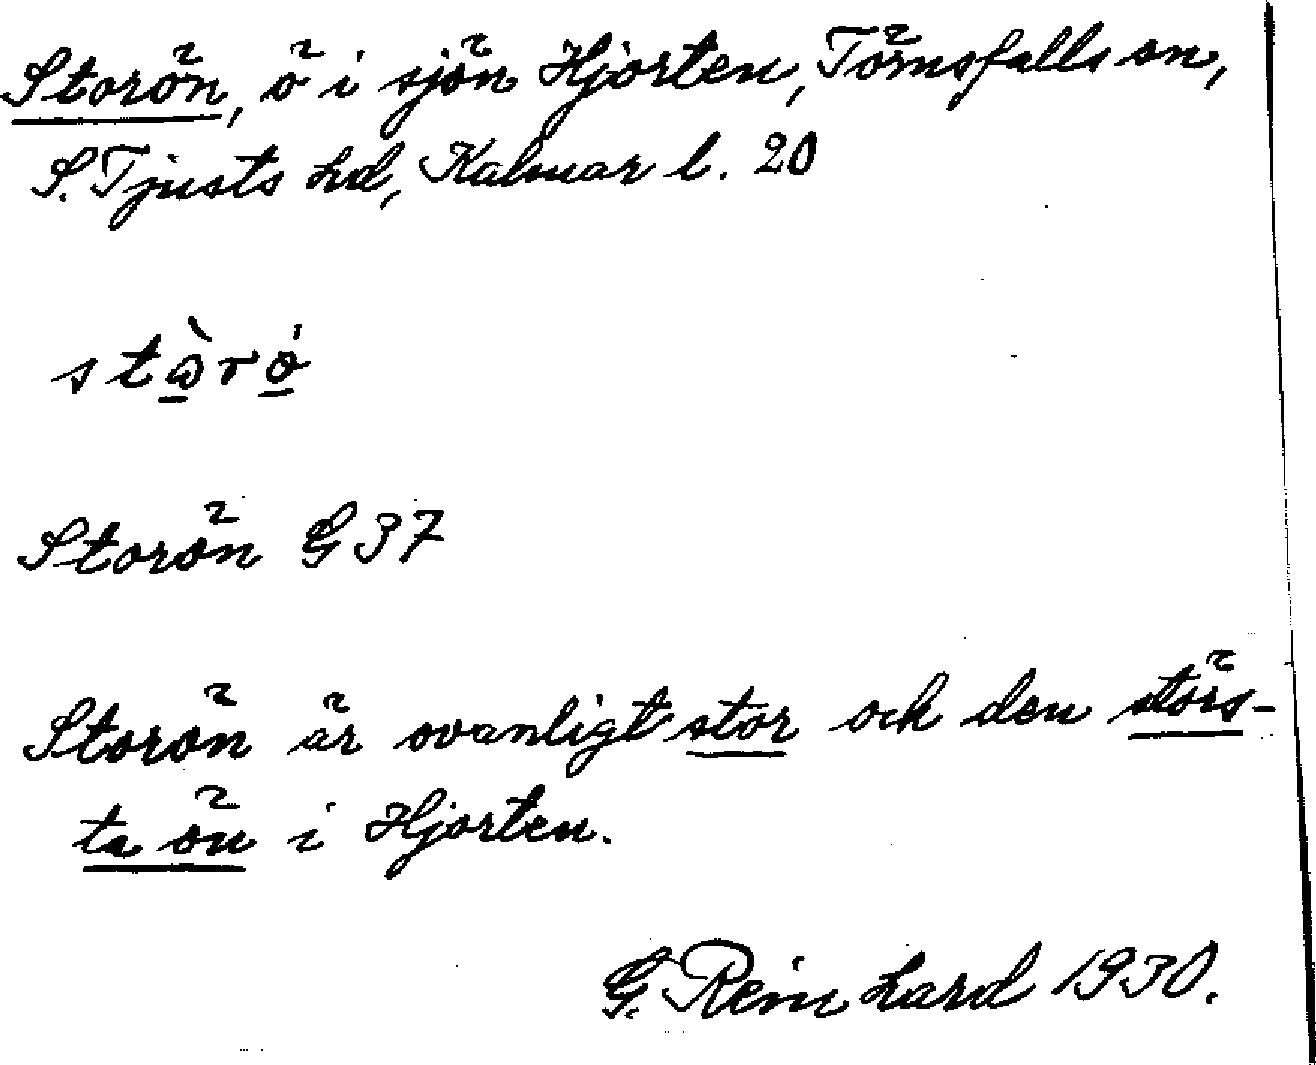 Storön, ö i sjön Hjorten, Törnsfalls sn,
S. Tjusts hd, Kalmar l. 20
stὼrǿ
Storön G 37
Storön är ovanligt stor och den störs-
ta ön i Hjorten.
G. Reinhard 1930.